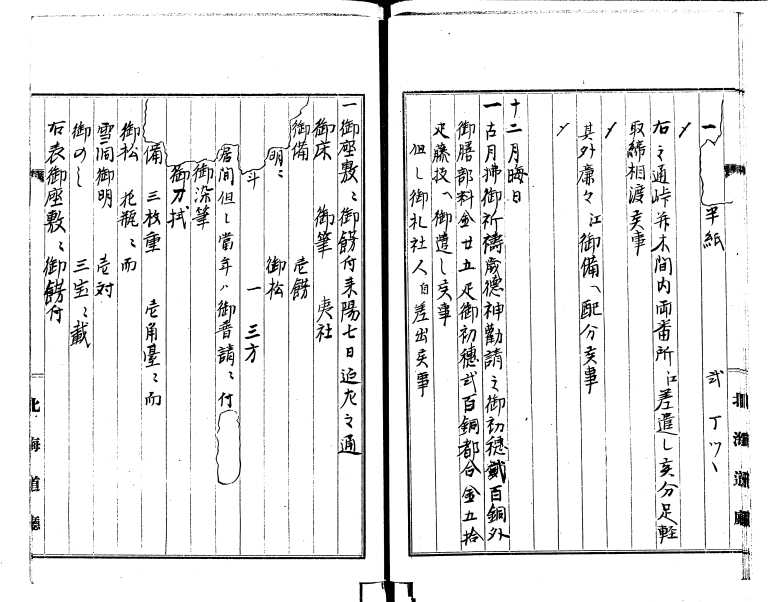 一 半紙 弐丁ツヽ
〃
右之通峠并木間内両番所江差遣し亥分足軽
取締相渡亥事
〃
其外廉々江御備へ配分亥事
〃
十二月晦日
一 古月拂御祈禱歳徳神勸請之御初穂貳百銅外
御膳部料金廿五疋御初穂弐百銅都合金五拾
疋藤枝へ御遣し亥事
但し御礼社人自差出亥事
北海道廳
一 御座敷ニ御餝付来陽七日迄左之通
御床 御筆 夷社
御備 壱餝
明ニ 御松
斗 一 三方
居間但し當年ハ御普請ニ付
御染筆
御刀拭
備 三枚重 壱角臺ニ而
御松 花瓶ニ而
雪洞御明 壱対
御のし 三宝ニ載
右表御座敷ニ御餝付
北海道廳